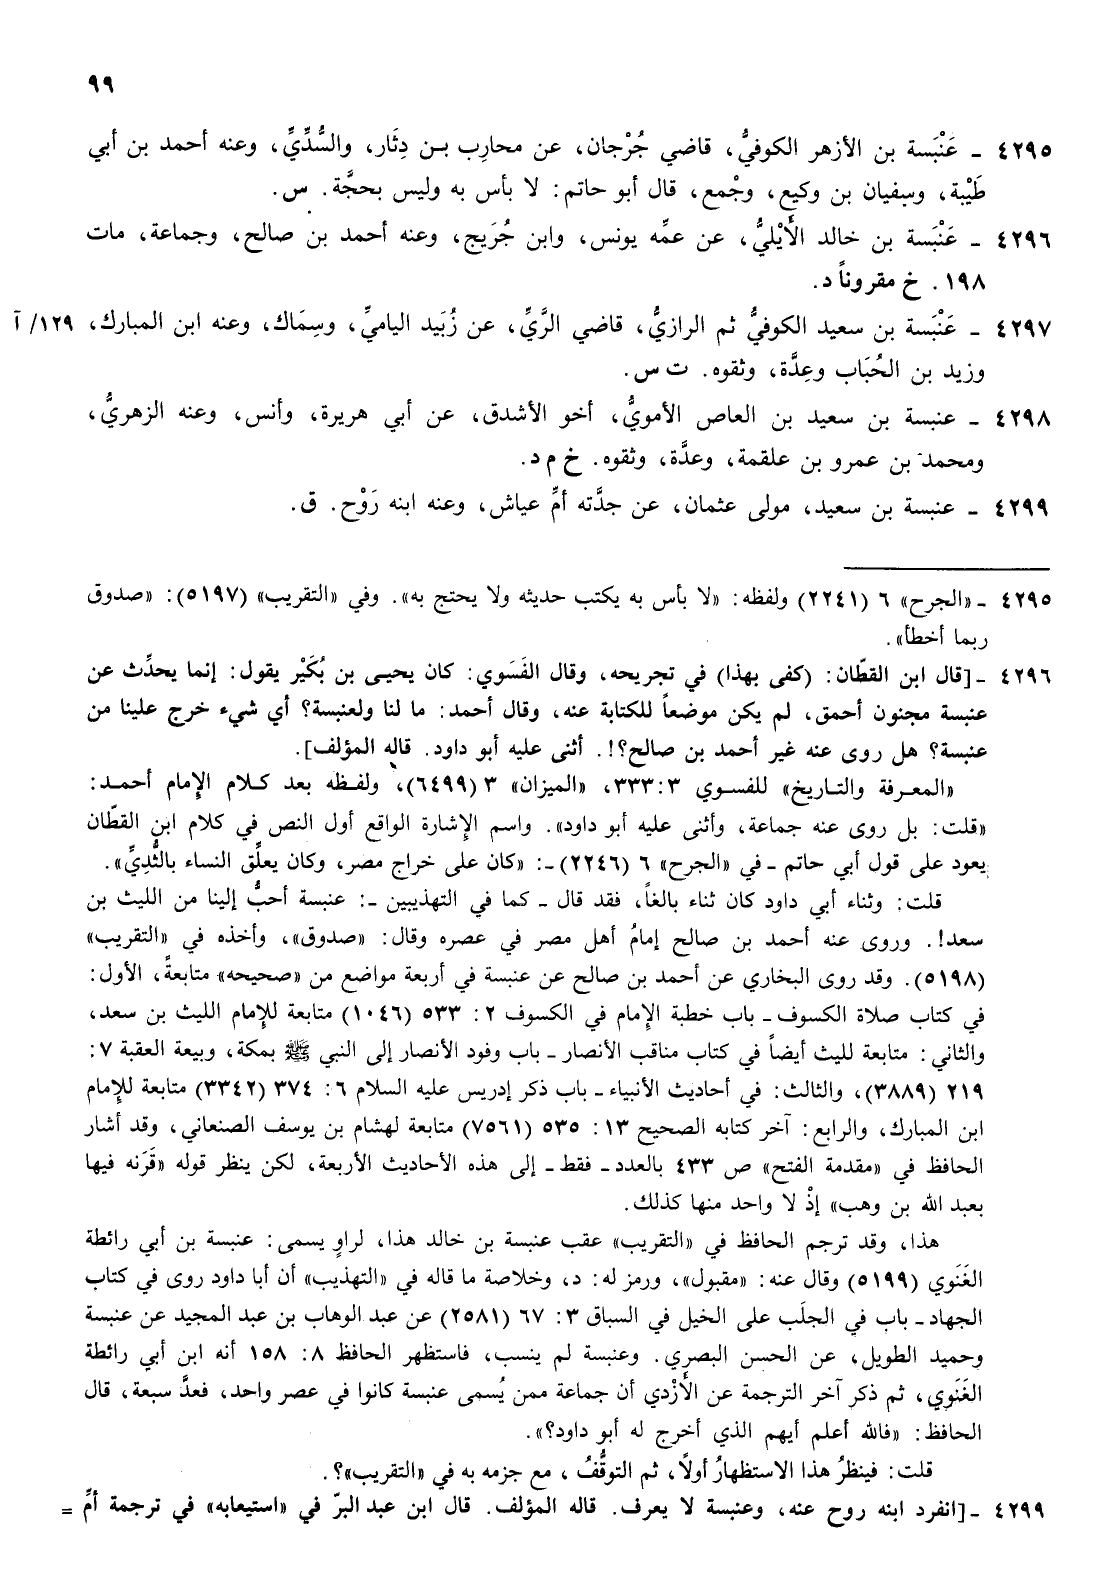 ٩٩
٤٢٩٥ ـ عَنْبَسة بن الأزهر الكوفيُّ، قاضي جُرْجان، عن محارِب بـن دِثَار، والسُّدِّيِّ، وعنه أحمد بن أبي
طَيْبة، وسفيان بن وكيع، وجْمع، قال أبو حاتم: لا بأس به وليس بحجَّة. س.
٤٢٩٦ ـ عَنْبَسة بن خالد الأَيْليُّ، عن عمِّه يونس، وابن جُرَيج، وعنه أحمد بن صالح، وجماعة، مات
١٩٨. خ مقروناً د.
٤٢٩٧ ـ عَنْبَسة بن سعيد الكوفيُّ ثم الرازيُّ، قاضي الرَّيِّ، عن زُبَيد الياميِّ، وسِمَاك، وعنه ابن المبارك، ١٢٩/ آ
وزيد بن الحُبَاب وعِدَّة، وثقوه. ت س.
٤٢٩٨ ـ عنبسة بن سعيد بن العاص الأمويُّ، أخو الأشدق، عن أبي هريرة، وأنس، وعنه الزهريُّ،
ومحمد بن عمرو بن علقمة، وعدَّة، وثقوه. خ م د.
٤٢٩٩ ـ عنبسة بن سعيد، مولى عثمان، عن جدَّته أمِّ عياش، وعنه ابنه رَوْح. ق.
٤٢٩٥ ـ «الجرح» ٦ (٢٢٤١) ولفظه: «لا بأس به يكتب حديثه ولا يحتج به». وفي «التقريب» (٥١٩٧): «صدوق
ربما أخطأ».
٤٢٩٦ ـ [قال ابن القطّان: (كفى بهذا) في تجريحه، وقال الفَسَوي: كان يحيـى بن بُكَيْر يقول: إنما يحدِّث عن
عنبسة مجنون أحمق، لم يكن موضعاً للكتابة عنه، وقال أحمد: ما لنا ولعنبسة؟ أي شيء خرج علينا من
عنبسة؟ هل روى عنه غير أحمد بن صالح؟!. أثنى عليه أبو داود. قاله المؤلف].
«المعـرفة والتـاريخ» للفسـوي ٣: ٣٣٣، «الميزان» ٣ (٦٤٩٩)، ولفـظه بعد كـلام الإمام أحمـد:
«قلت: بل روى عنه جماعة، وأثنى عليه أبو داود». واسم الإشارة الواقع أول النص في كلام ابن القطّان
يعود على قول أبي حاتم ـ في «الجرح» ٦ (٢٢٤٦) ـ: «كان على خراج مصر، وكان يعلِّق النساء بالثُّدِيِّ».
قلت: وثناء أبي داود كان ثناء بالغاً، فقد قال ـ كما في التهذيبين ـ: عنبسة أحبُّ إلينا من الليث بن
سعد!. وروى عنه أحمد بن صالح إمامُ أهل مصر في عصره وقال: «صدوق»، وأخذه في «التقريب»
(٥١٩٨). وقد روى البخاري عن أحمد بن صالح عن عنبسة في أربعة مواضع من «صحيحه» متابعةً، الأول:
في كتاب صلاة الكسوف ـ باب خطبة الإمام في الكسوف ٢: ٥٣٣ (١٠٤٦) متابعة للإمام الليث بن سعد،
والثاني: متابعة لليث أيضاً في كتاب مناقب الأنصار ـ باب وفود الأنصار إلى النبي ﷺ بمكة، وبيعة العقبة ٧:
٢١٩ (٣٨٨٩)، والثالث: في أحاديث الأنبياء ـ باب ذكر إدريس عليه السلام ٦: ٣٧٤ (٣٣٤٢) متابعة للإمام
ابن المبارك، والرابع: آخر كتابه الصحيح ١٣: ٥٣٥ (٧٥٦١) متابعة لهشام بن يوسف الصنعاني، وقد أشار
الحافظ في «مقدمة الفتح» ص ٤٣٣ بالعدد ـ فقط ـ إلى هذه الأحاديث الأربعة، لكن ينظر قوله «قَرَنه فيها
بعبد الله بن وهب» إذْ لا واحد منها كذلك.
هذا، وقد ترجم الحافظ في «التقريب» عقب عنبسة بن خالد هذا، لراوٍ يسمى: عنبسة بن أبي رائطة
الغَنَوي (٥١٩٩) وقال عنه: «مقبول»، ورمز له: د، وخلاصة ما قاله في «التهذيب» أن أبا داود روى في كتاب
الجهاد ـ باب في الجلَب على الخيل في السباق ٣: ٦٧ (٢٥٨١) عن عبد الوهاب بن عبد المجيد عن عنبسة
وحميد الطويل، عن الحسن البصري. وعنبسة لم ينسب، فاستظهر الحافظ ٨: ١٥٨ أنه ابن أبي رائطة
الغَنَوي، ثم ذكر آخر الترجمة عن الأَزْدي أن جماعة ممن يُسمى عنبسة كانوا في عصر واحد، فعدَّ سبعة، قال
الحافظ: «فالله أعلم أيهم الذي أخرج له أبو داود؟».
قلت: فينظرُ هذا الاستظهارُ أولاً، ثم التوقُّفُ، مع جزمه به في «التقريب»؟.
٤٢٩٩ ـ [انفرد ابنه روح عنه، وعنبسة لا يعرف. قاله المؤلف. قال ابن عبد البرّ في «استيعابه» في ترجمة أمِّ =